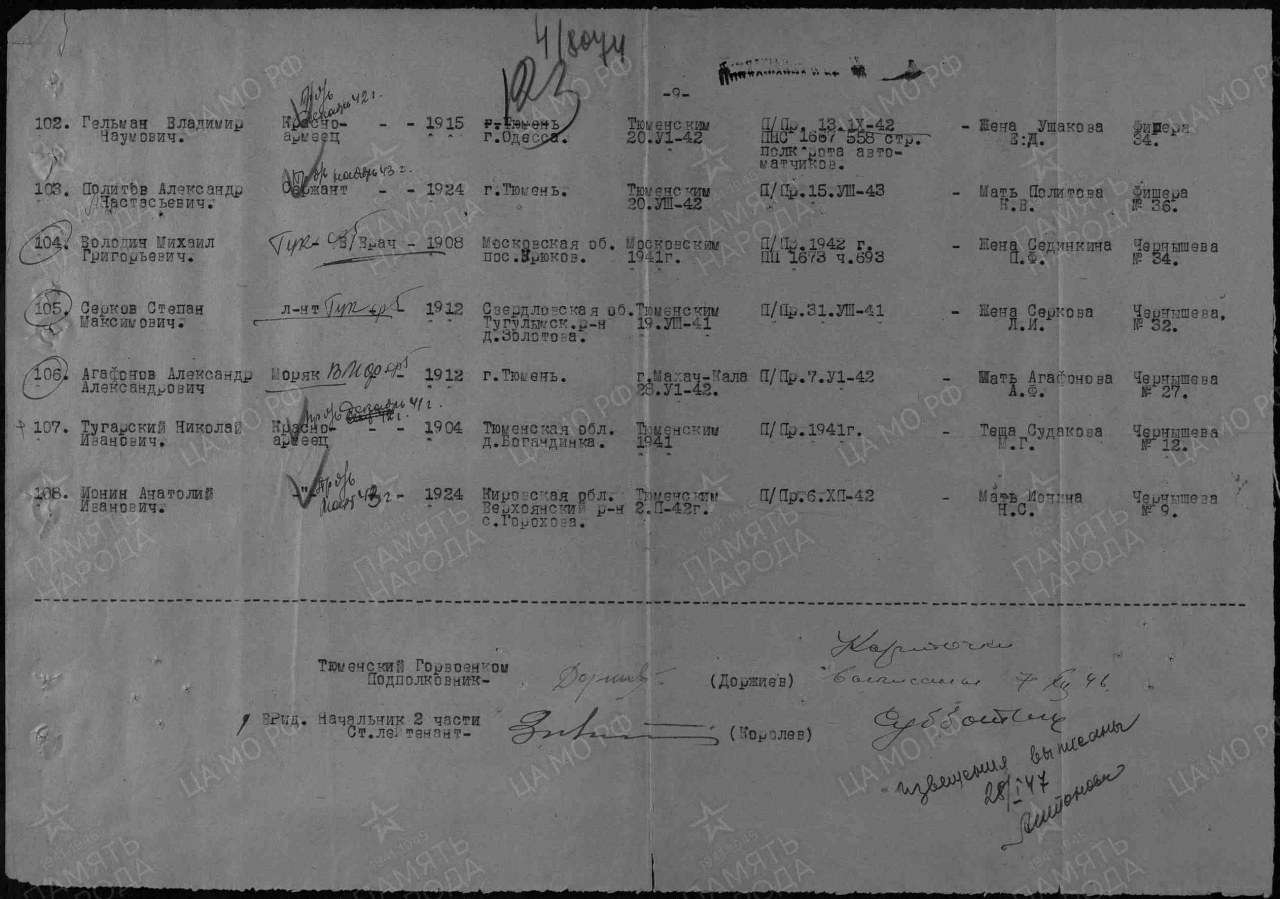 4/8074
123
-9-
проп декабрь 42 г.
102. Гельман Владимир Красно- - - 1915 г.Тюмень Тюменским П/Пр. 13.IX-42 - Жена Ушакова Фишера
Наумович. армеец г.Одесса. 20.У1-42 ППС 1667 558 стр. Е.Д. 34.
полк рота авто-
матчиков.
ноябрь 43 г.
103. Политов Александр Сержант - 1924 г.Тюмень. Тюменским П/Пр.15.УШ-43 - Мать Политова Фишера
Настасьевич. 20.УШ-42 К.В. № 36.
104. Володин Михаил В/Врач - 1908 Московская об. Московским П/Пр.1942 г. - Жена Сединкина Чернышева
Григорьевич. пос.Крюков. 1941г. ПП 1673 ч.693 П.Ф. № 34.
105. Серков Степан л-нт 1912 Свердловская об.Тюменским П/Пр.31.УШ-41 - Жена Серкова Чернышева,
Максимович. Тугулымск.р-н 19.УШ-41 Л.И. № 32.
д.Золотова.
106. Агафонов Александр Моряк - 1912 г.Тюмень. г.Махач-Кала П/Пр.7.У1-42 - Мать Агафонова Чернышева
Александрович 28.У1-42. А.Ф. № 27.
декабрь 41 г.
107. Тугарский Николай Красно- - - 1904 Тюменская обл. Тюменским П/Пр.1941г. - Теща Судакова Чернышева
Иванович. армеец д.Богандинка. 1941 М.Г. № 12.
март 43 г.
108. Ионин Анатолий -"- - 1924 Кировская обл. Тюменским П/Пр.6.ХП-42 - Мать Ионина Чернышева
Иванович. Верхоянский р-н 2.П-42г. Н.С. № 9.
с.Горохова.
Карточки
Тюменский Горвоенком
Подполковник- (Доржиев) выписаны 7 XII 46
ВРид. Начальник 2 части
Ст.лейтенант- (Королев)
извещения выписаны
28/I 47
ЦА МО РФ
ПАМЯТЬ НАРОДА